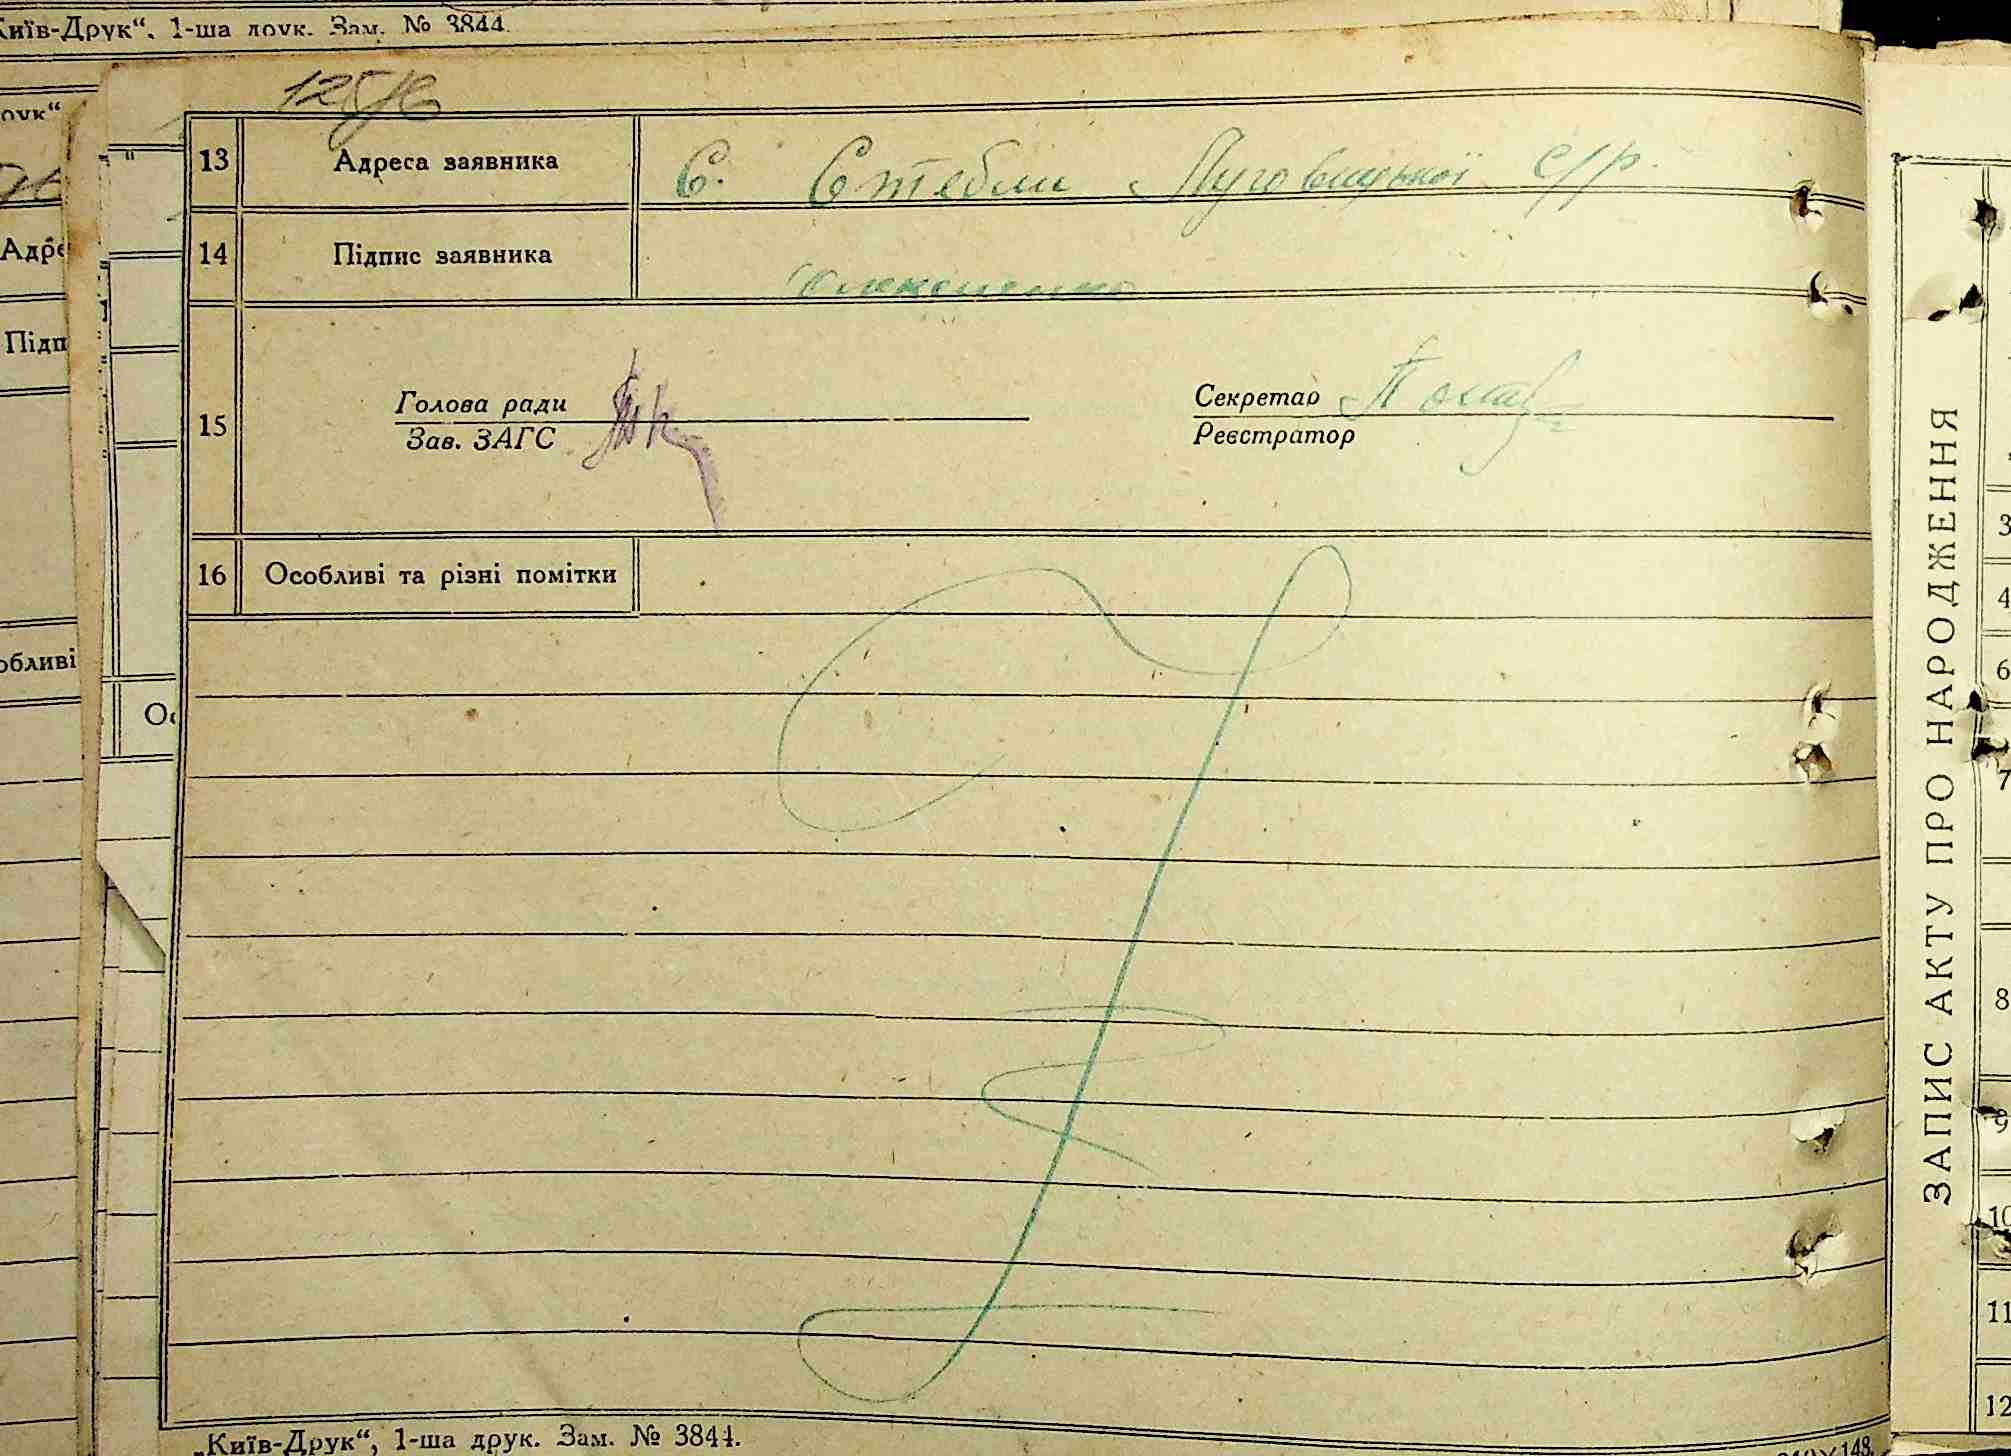 Київ-Друк“, 1-ша друк. Зам. № 3844.
друк“
13 Адреса заявника С. Стебли Луговицької с/р.
14 Підпис заявника Олексієнко
15 Голова ради
Зав. ЗАГС
Секретар
Реєстратор
16 Особливі та різні помітки
„Київ-Друк“, 1-ша друк. Зам. № 3844.
Адре
Підп
обливі
Ос
ЗАПИС АКТУ ПРО НАРОДЖЕННЯ
3
4
6
7
8
9
10
11
12
148.